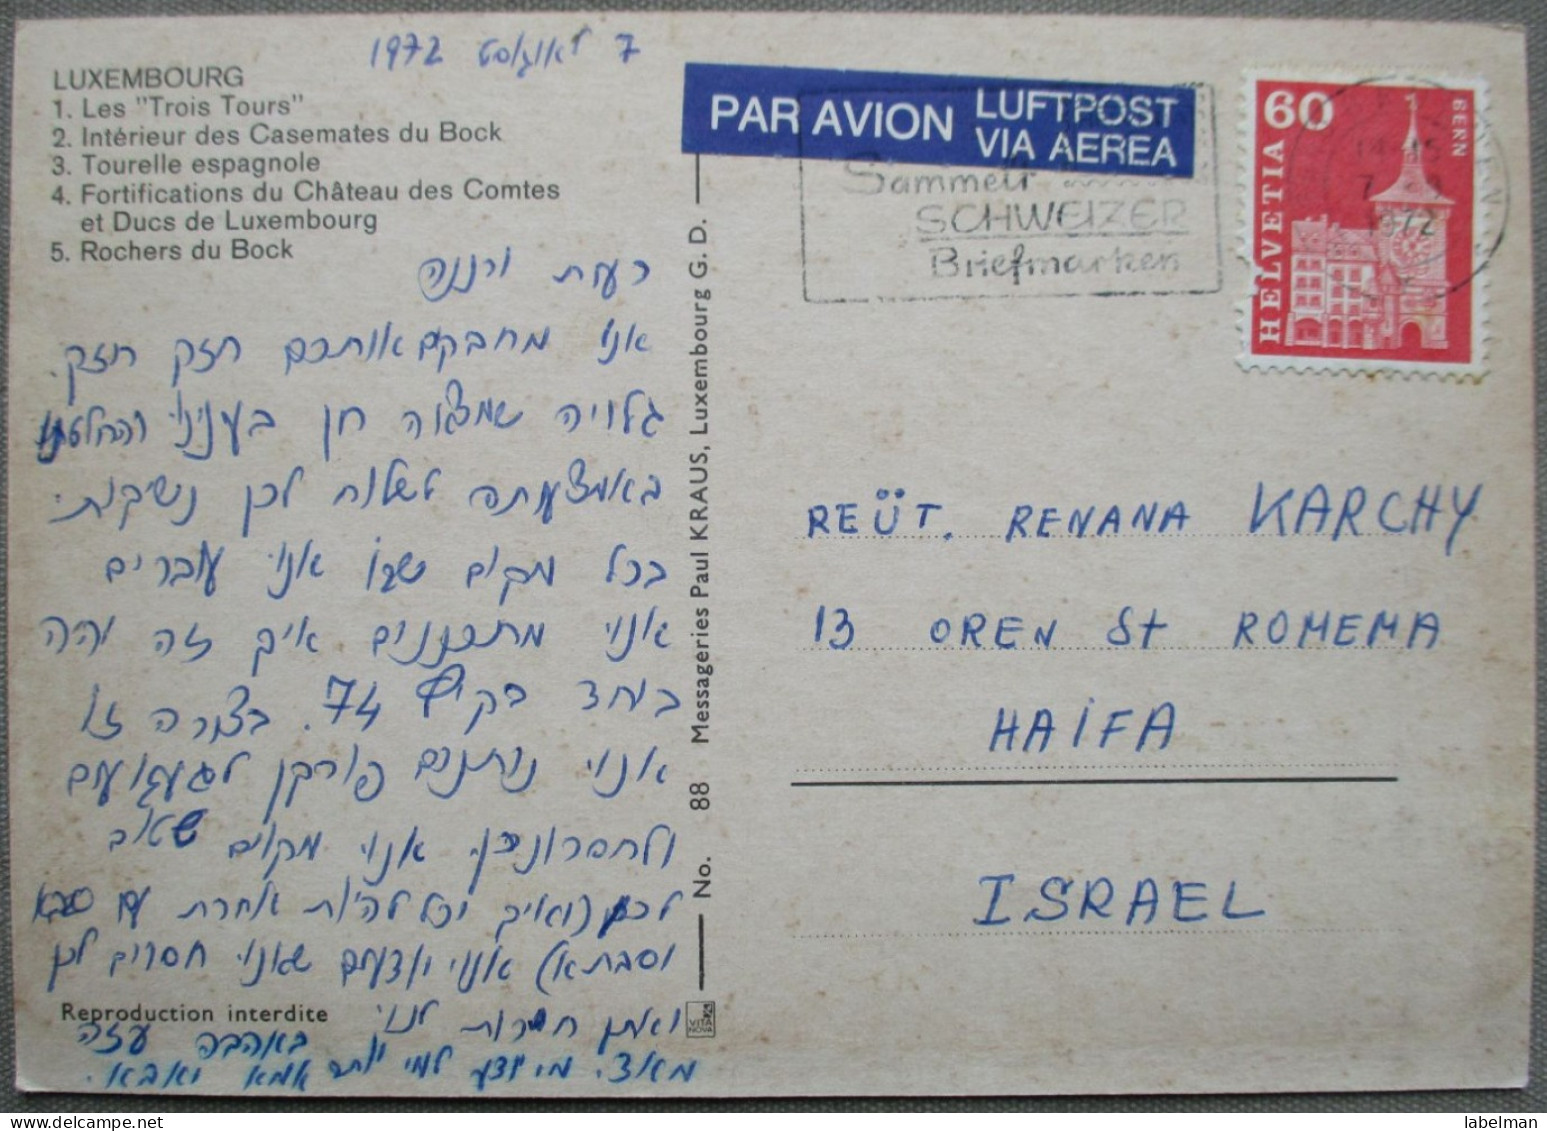 7 לאוגוסט 1972
LUXEMBOURG
1. Les "Trois Tours"
2. Intérieur des Casemates du Bock
3. Tourelle espagnole
4. Fortifications du Château des Comtes
et Ducs de Luxembourg
5. Rochers du Bock
רעות ורננה
אנו מחבקים אותכם חזק חזק.
גלויה שמצאה חן בעניני והחלטנו
באמצעותה לשלוח לכן נשיקות.
בכל מקום שבו אנו עוברים
אנוי מתכננים איך זה יהיה
ביחד בקיץ 74. בצורה זו
אנוי נותנים פורקן לגעגועים
ולחסרונכן. אנוי מקוים שטוב
לכן (ואיך יכל להיות אחרת עם סבא
וסבתא) אנוי יודעים שאנוי חסרים לכן
ואתן חסרות לנוי באהבה עזה
מאוד. מי יודע למי יותר אמא ואבא.
Reproduction interdite
No. 88 Messageries Paul KRAUS, Luxembourg G. D.
VITA NOVA
PAR AVION LUFTPOST
VIA AEREA
Sammelt
SCHWEIZER
Briefmarken
60
BERN
HELVETIA
14-15
7
1972
REÜT. RENANA KARCHY
13 OREN St ROMEMA
HAIFA
ISRAEL
labelman delcampe.net